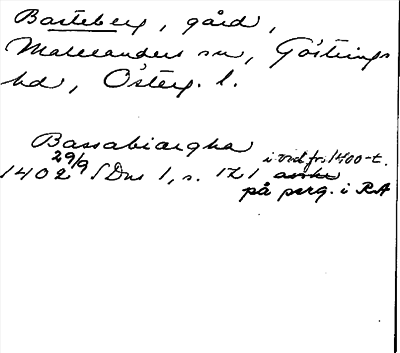 Basteberg, gård,
Malexanders sn, Göstrings
hd, Österg. l.
Bassabiargha
i vid fr. 1400-t.
1402 29/9 SDns 1, s. 121 avskr
på perg. i RA